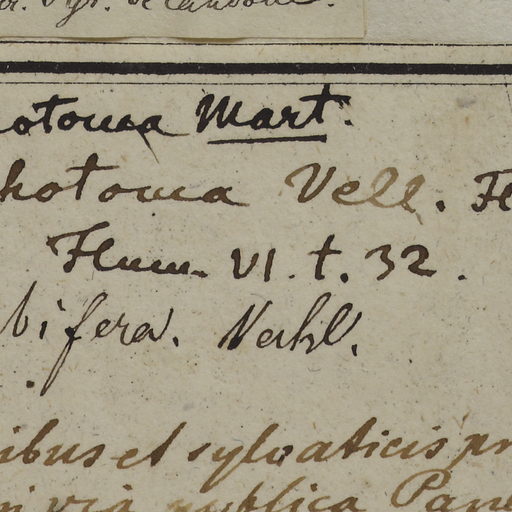 Syst. DeCandolle.
hotoma Mart.
hotoma Vell. Fl
Flum. VI. t. 32.
bifera. Vahl.
ibus et sylvaticis pr
via publica Pan